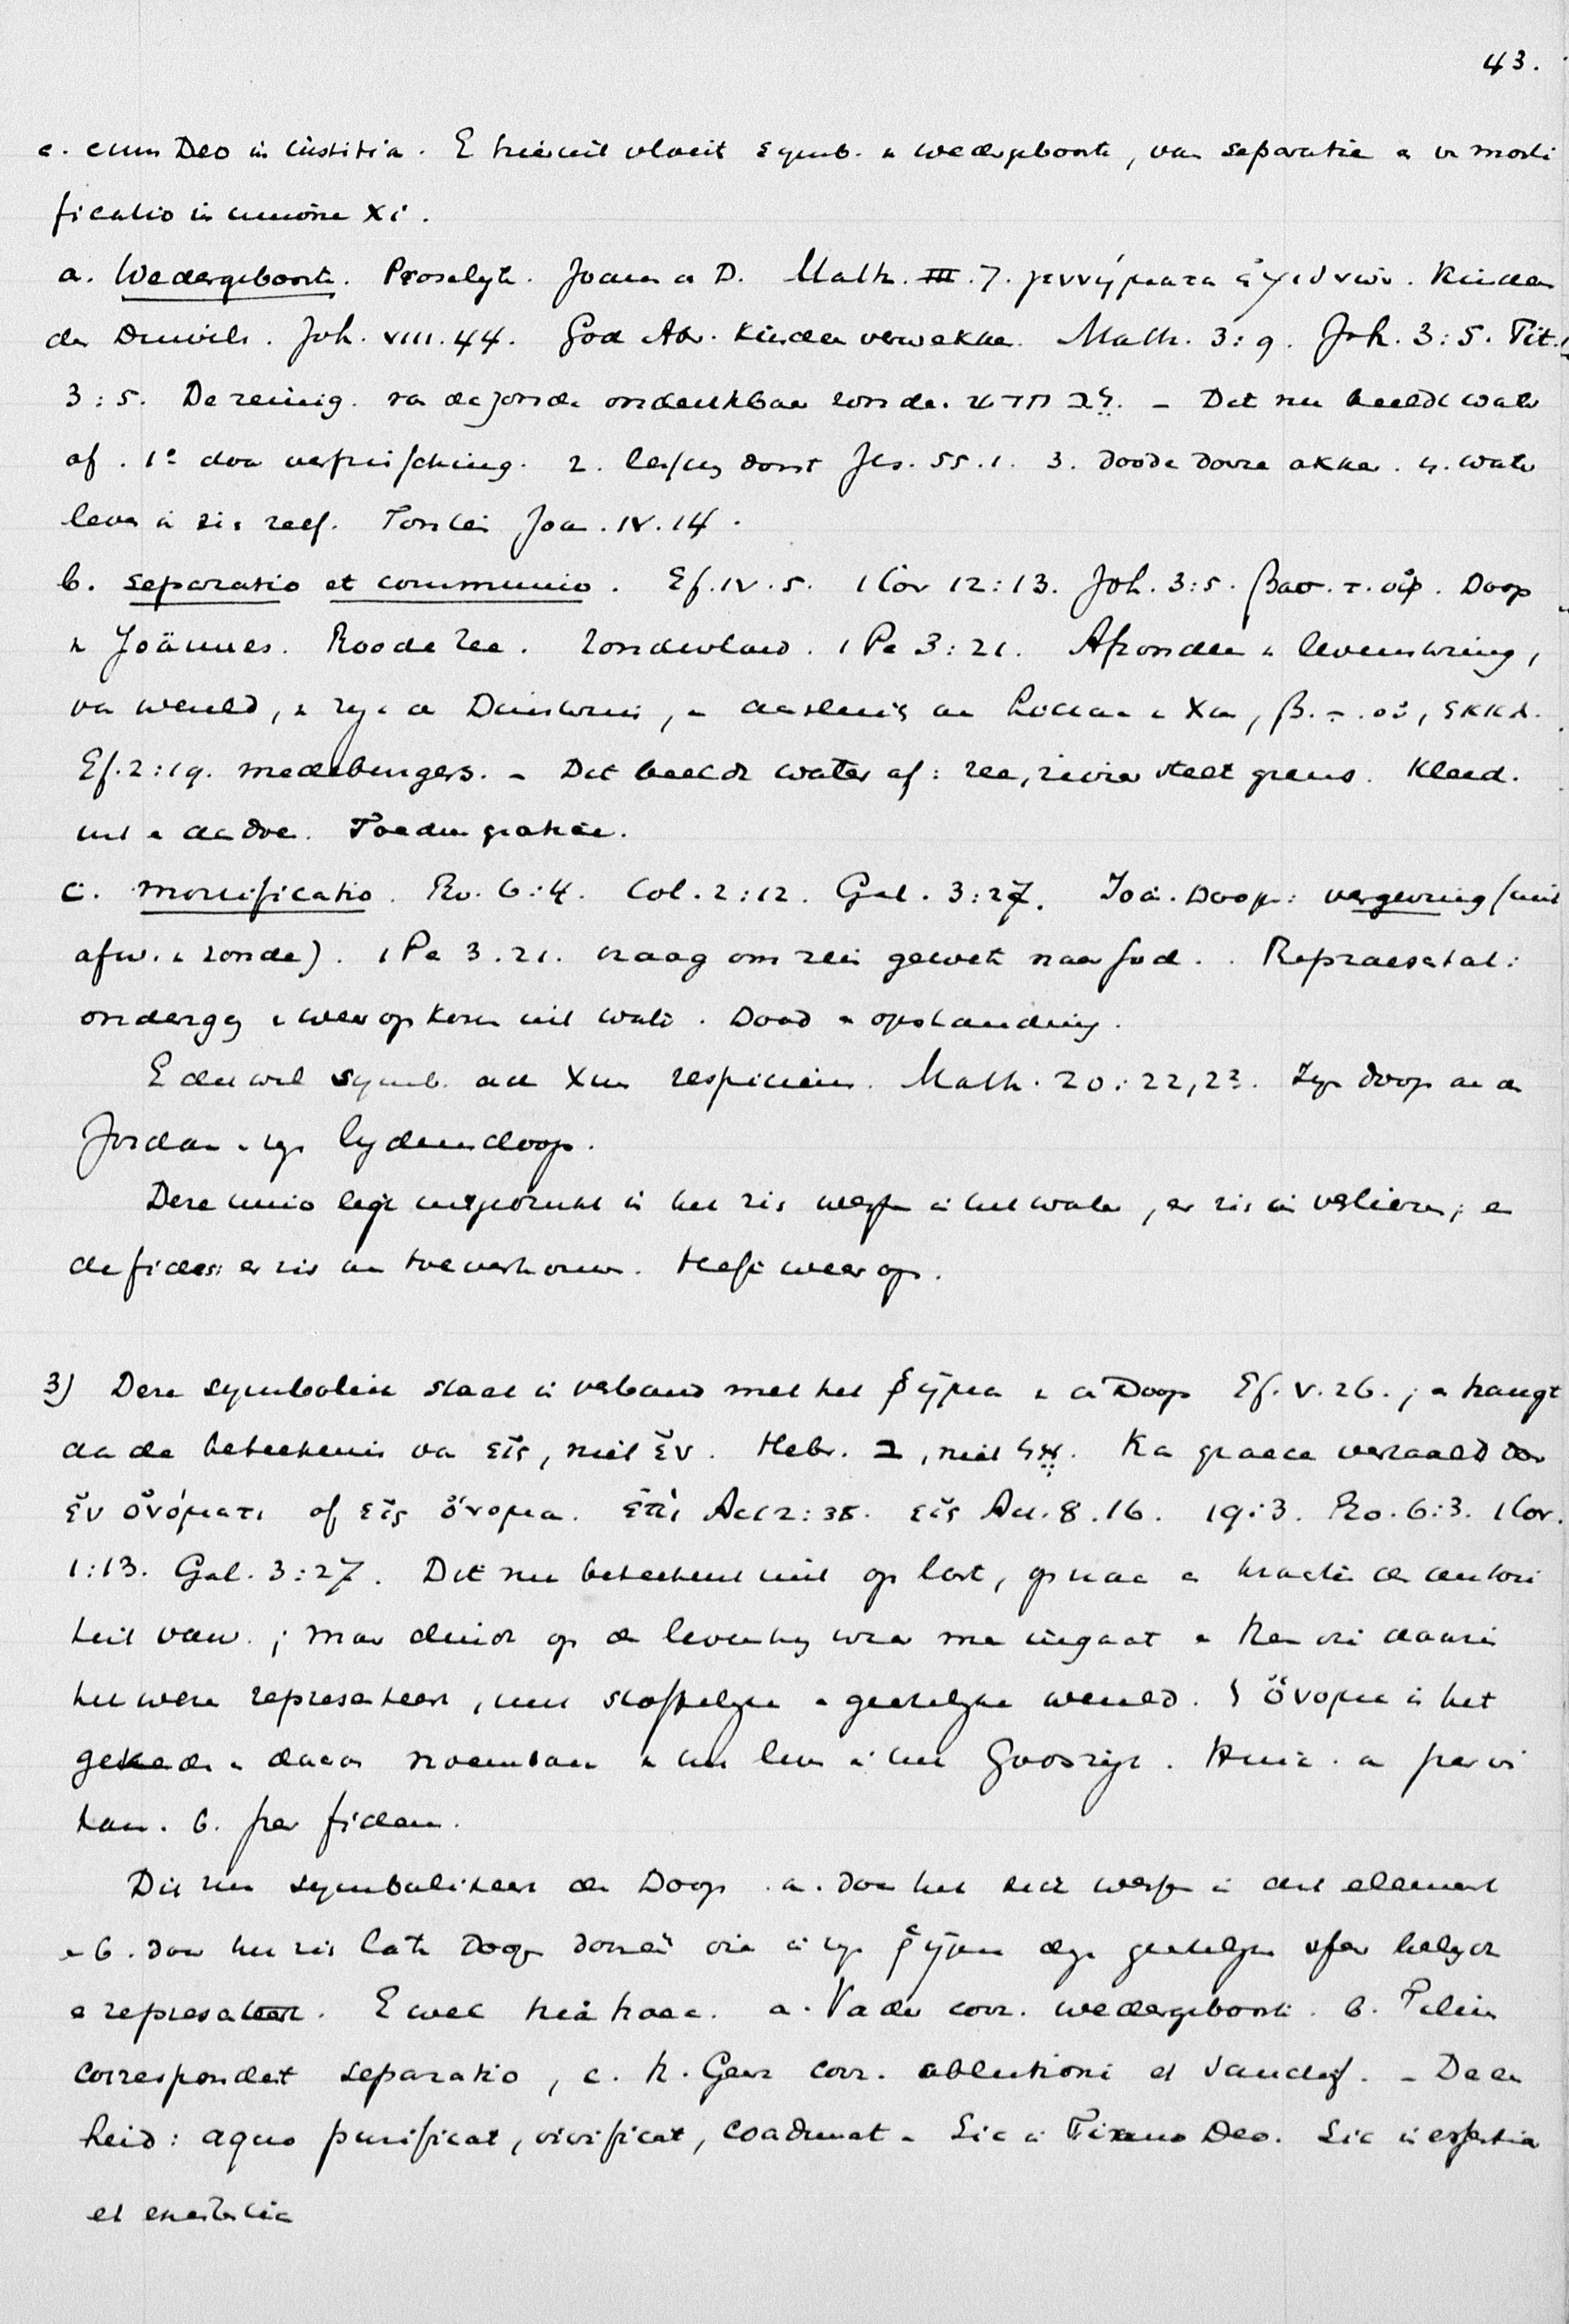 43.
c. cum Deo in iustitia. E hieruit vloeit symb. v. wedergeboorte, van separatie en v. morti
ficatio in unione Xi.
a. Wedergeboorte. Proselyt. Joan. d. D. Matth. III.7. γεννήματα ἐχιδνῶν. Kinder
des Duivels. Joh. VIII.44. God Abr. kinder verwekke. Matth. 3:9. Joh. 3:5. Tit.
3:5. De reinig. va de zonde ondenkbaar zonde. חדש לב. – Dit nu beeldt water
af. 1° door verfrissching. 2. lessch dorst Jes. 55.1. 3. doode dorre akker. 4. water
leven in zich zelf. Fontein Joa. IV.14.
b. separatio et communio. Ef. IV.5. 1 Cor 12:13. Joh. 3:5. βασ. τ. οὐρ. Doop
v Joännes. Roode Zee. Zondvloed. 1 Pe 3:21. Afzonder. v levenskring,
va wereld, v ryk d Duisternis, en aansluit. aan v Xus, β. τ. οὐ, ἐκκλ.
Ef. 2:19. medeburgers. – Dit beeldt water af: zee, rivier stelt grens. Kleed.
uit en aandoe. Foedus gratiae.
c. mortificatio. Ro. 6:4. Col. 2:12. Gal. 3:27. Joä. Doop: vergeving (uit
afw. v zonde). 1 Pe 3.21. vraag om rein gewete naar God. Repraesetat:
onderg. en weer opkom. uit water. Dood en opstanding.
E dus wel symb. ad Xum respiciens. Matth. 20:22,23. Zyn doop aan d
Jordaan en zyn lydensdoop.
Deze unio ligt uitgedrukt in het zich werpen in het water, er zich in verliezen; en
de fides: er zich aan toevertrouwen. Heft weer op.
3) Deze symboliek staat in verband met het ῥῆμα v d Doop Ef. V.26.; en hangt
aan de beteekenis va εἰς, niet ἐν. Hebr. ב, niet אל. Ka graece vertaald door
ἐν ὀνόματι of εἰς ὄνομα. ἐπὶ Act 2:38. εἰς Act. 8.16. 19:3. Ro. 6:3. 1 Cor.
1:13. Gal. 3:27. Dit nu beteekent niet op last, op naam en krachtens de autori
teit van.; maar duidt op de levenskring waar men ingaat en het daarin
het wezen represeteert, een stoffelyke en geestelyke wereld. 't ὄνομα is het
gekende en daarom noembare v het leven in het Godsryk. a per
b. per fidem.
Dit nu symboliseert de Doop. a. door het zich werpen in dat element
en b. door het zich laten Doopen door die in zyn ῥῆμα deze geestelyke sfeer belydt
en represeteert. E wel a. Vader corr. wedergeboorte. b. Filius
correspondeert separatio, c. h. Geest corr. ablutioni et sanctif. – De een
heid: aqua purificat, vivificat, coadunat. Sic in Trino Deo. Sic in essentia
et existentia